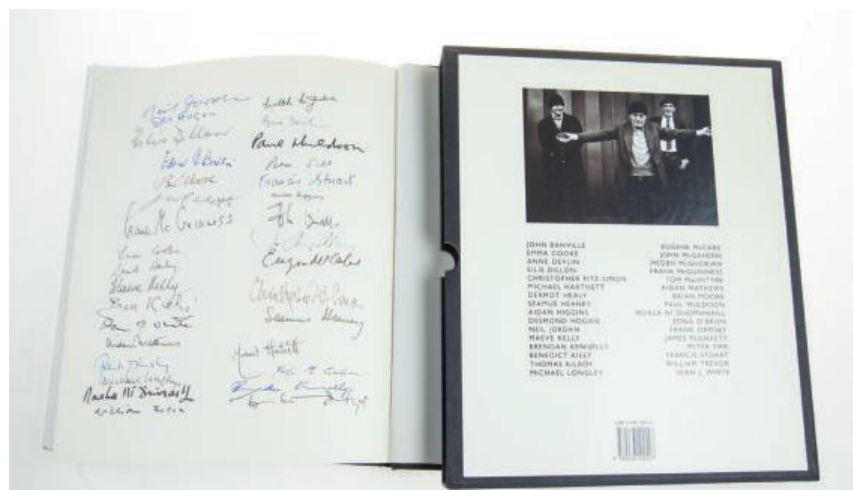 Neil Jordan
Des Hogan
Eilís Dillon
Edna O'Brien
Frank McGuinness
Emma Cooke
Dermot Healy
Maeve Kelly
Sean J White
Aidan Mathews
Nuala Ní Dhomhnaill
William Trevor
Medbh McGuckian
Anne Devlin
Paul Muldoon
Francis Stuart
Aidan Higgins
John
Eugene McCabe
Christopher Fitz-Simon
Seamus Heaney
Michael Hartnett
Brendan Kennelly
JOHN BANVILLE
EMMA COOKE
ANNE DEVLIN
EILIS DILLON
CHRISTOPHER FITZ-SIMON
MICHAEL HARTNETT
DERMOT HEALY
SEAMUS HEANEY
AIDAN HIGGINS
DESMOND HOGAN
NEIL JORDAN
MAEVE KELLY
BRENDAN KENNELLY
BENEDICT KIELY
THOMAS KILROY
MICHAEL LONGLEY
EUGENE McCABE
JOHN McGAHERN
MEDBH McGUCKIAN
FRANK McGUINNESS
TOM MacINTYRE
AIDAN MATHEWS
BRIAN MOORE
PAUL MULDOON
NUALA NI DHOMHNAILL
EDNA O'BRIEN
FRANK ORMSBY
JAMES PLUNKETT
PETER SIRR
FRANCIS STUART
WILLIAM TREVOR
SEAN J. WHITE